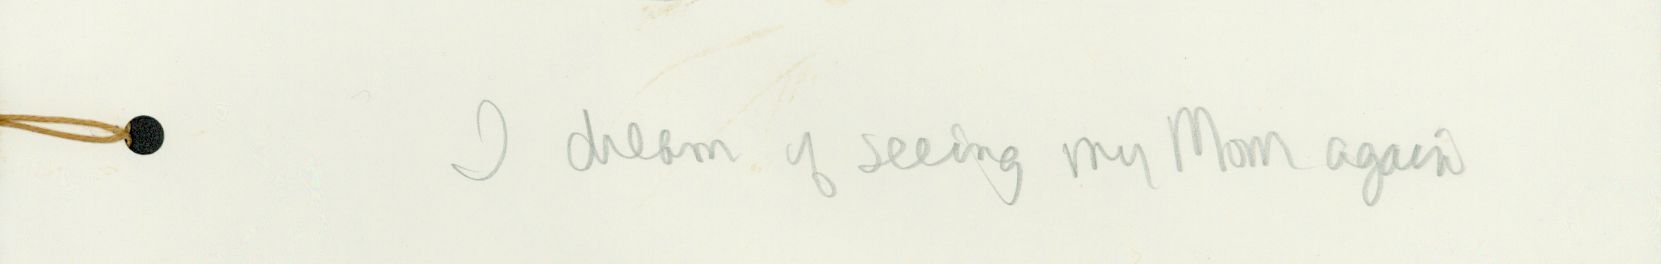 I dream of seeing my Mom again